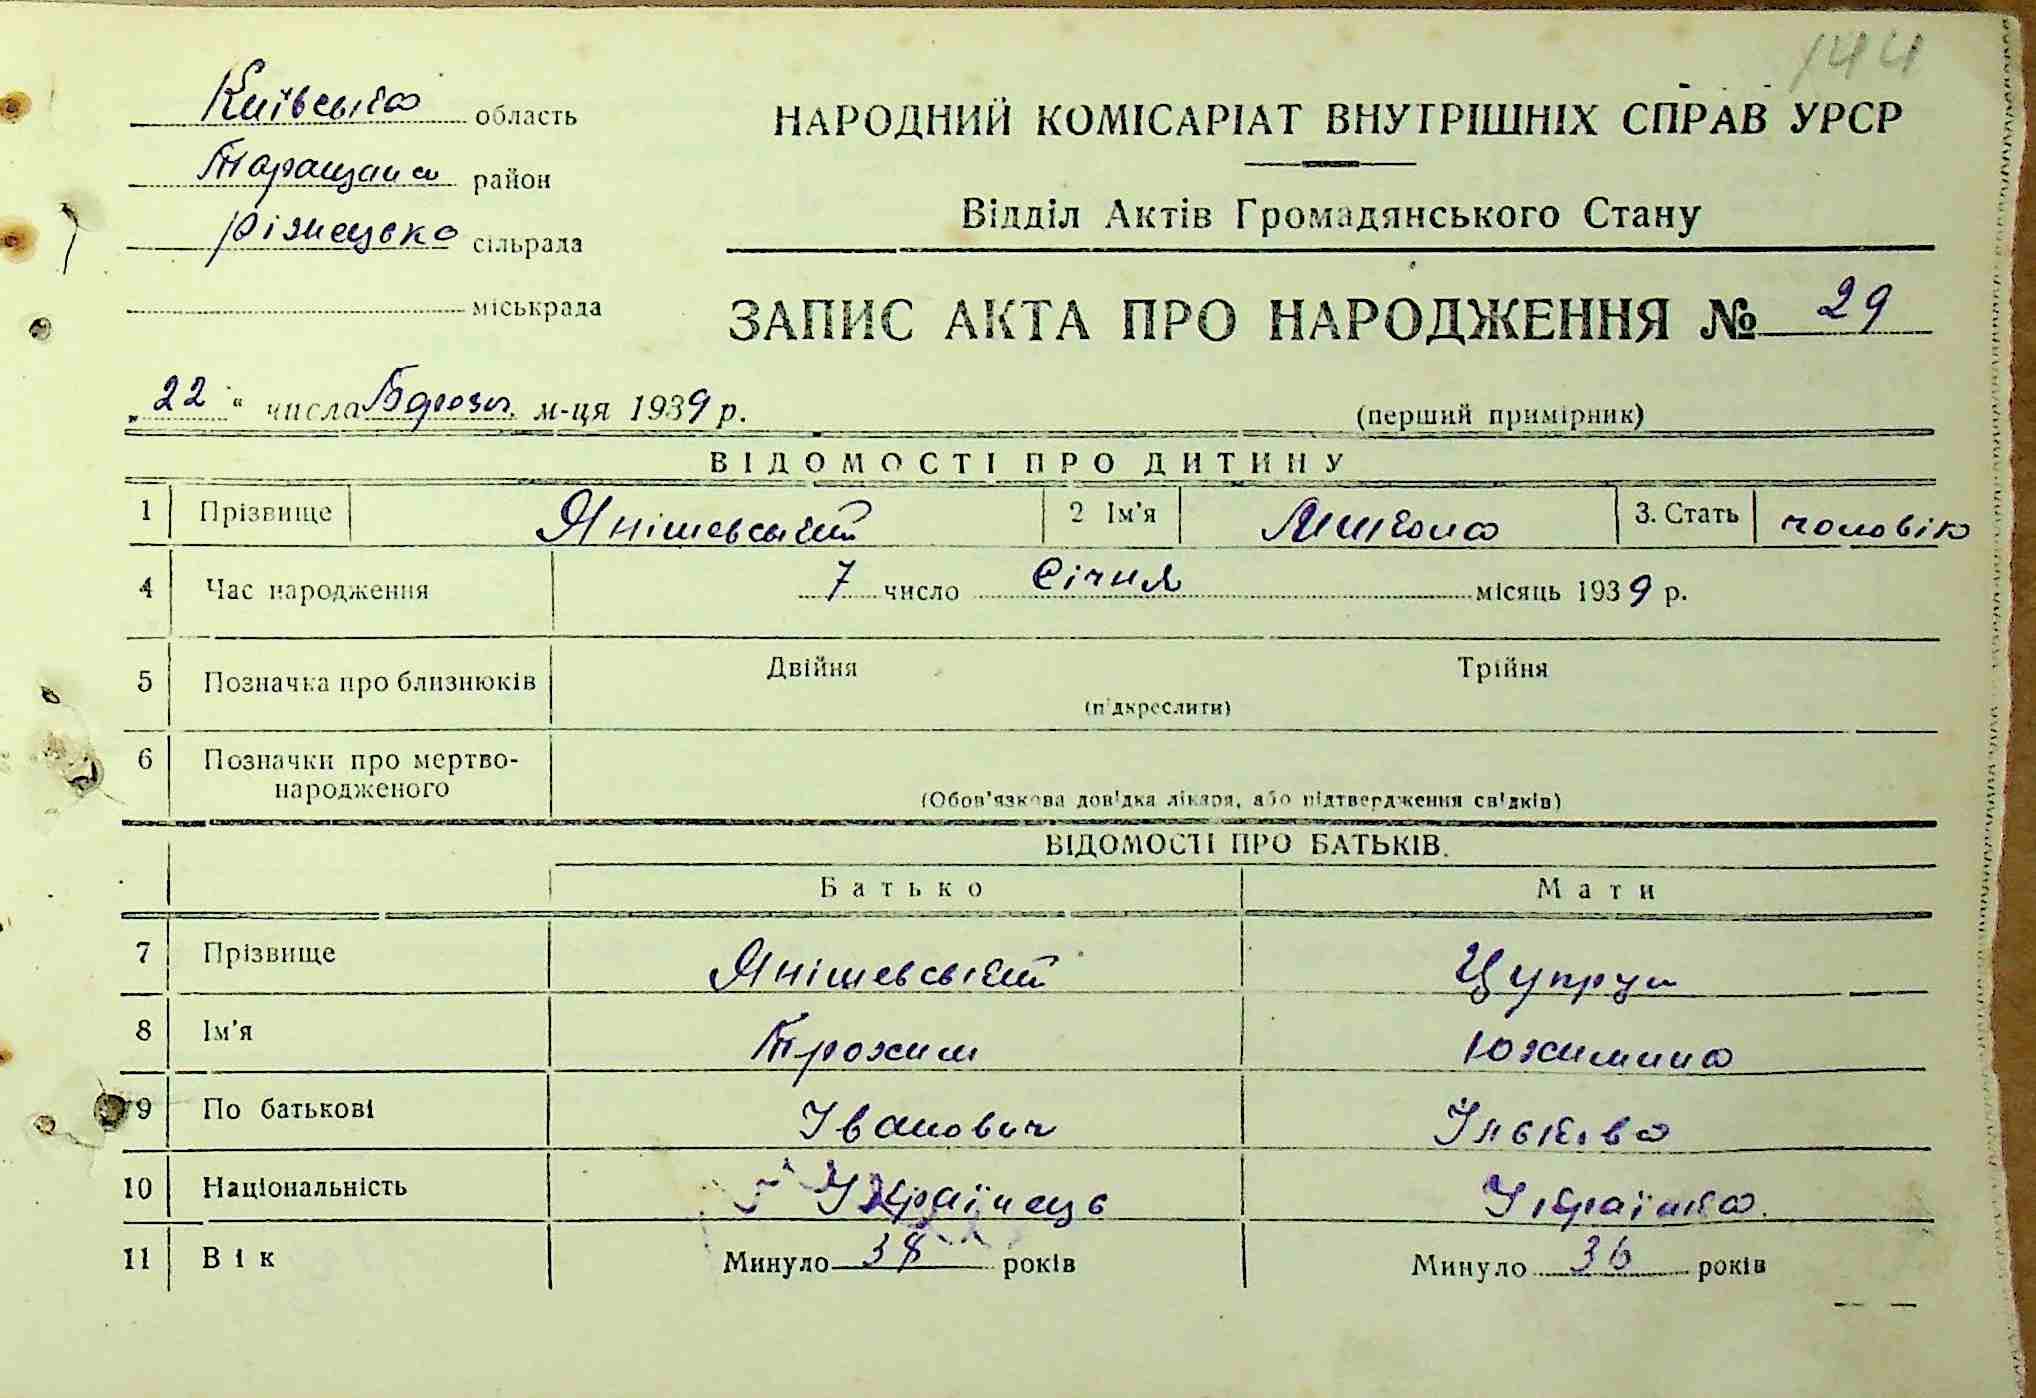 144
Київська область
НАРОДНИЙ КОМІСАРІАТ ВНУТРІШНІХ СПРАВ УРСР
Таращан район
Відділ Актів Громадянського Стану
Ріжецька сільрада
міськрада
ЗАПИС АКТА ПРО НАРОДЖЕННЯ № 29
„22“ числа Березн. м-ця 1939 р.
(перший примірник)
ВІДОМОСТІ ПРО ДИТИНУ
1 Прізвище Янішевський 2 Ім'я Микола 3. Стать чоловік
4 Час народження 7 число Січня місяць 1939 р.
5 Позначка про близнюків Двійня Трійня
(підкреслити)
6 Позначки про мертво-
народженого
(Обов'язкова довідка лікаря, або підтвердження свідків)
ВІДОМОСТІ ПРО БАТЬКІВ.
Батько Мати
7 Прізвище Янішевський Цупрун
8 Ім'я Трохим Юхимина
9 По батькові Іванович Ількова
10 Національність Українець Українка.
11 Вік Минуло 38 років Минуло 36 років